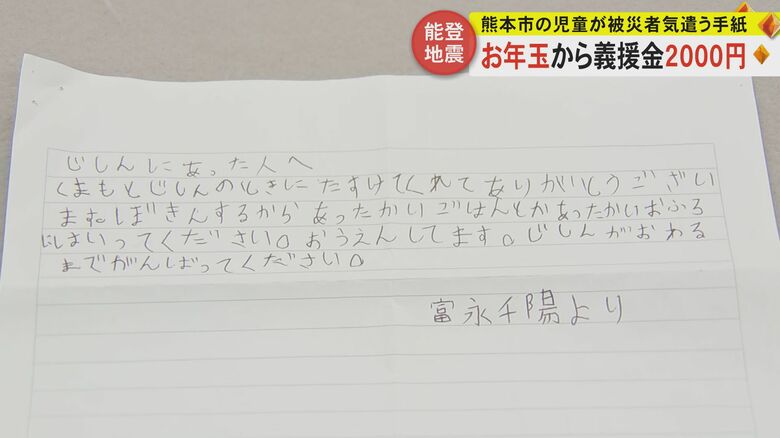 能登
地震
熊本市の児童が被災者気遣う手紙
お年玉から義援金2000円
じしんにあった人へ
くまもとじしんのときにたすけてくれてありがいとうござい
まねぼきんするからあったかいごはんとかあったかいおふろ
にはいってください。おうえんしてます。じしんがおわる
までがんばってください。
富永千陽より